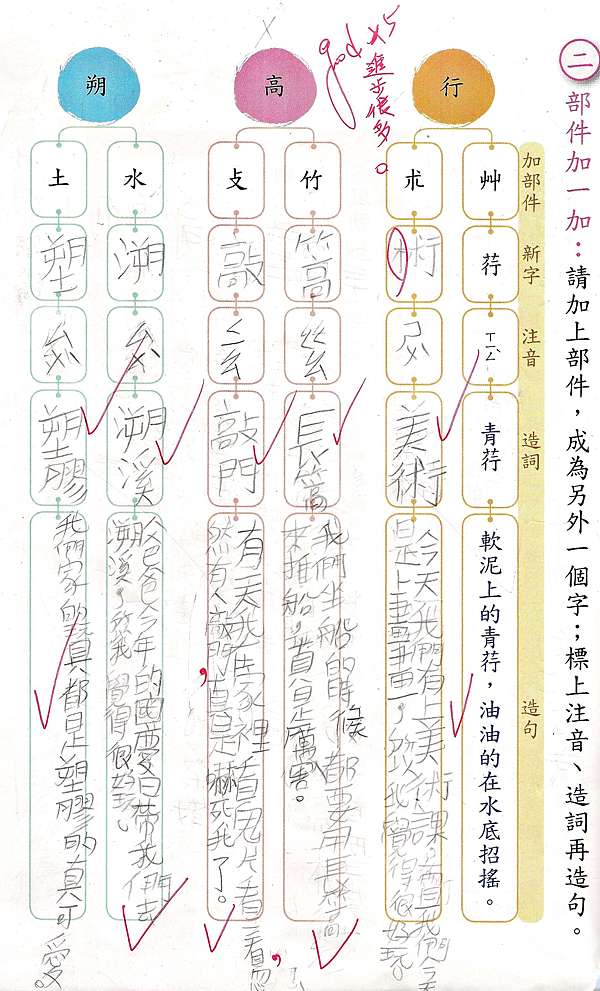 二 部件加一加：請加上部件，成為另外一個字；標上注音、造詞再造句。
good x5
進步很多。
行
高
朔
加部件
新字
注音
造詞
造句
艸
荇
ㄒㄧㄥˋ
青荇
軟泥上的青荇，油油的在水底招搖。
朮
術
ㄕㄨˋ
美術
今天我們有上美術課，而且我們今天
是上畫畫，所以我覺得很好玩。
竹
篙
ㄍㄠ
長篙
我們坐船的時候都要用長篙
來推船，真是厲害。
攴
敲
ㄑㄧㄠ
敲門
有一天我在家裡看鬼片看一看，忽
然有人敲門，真是嚇死我了。
水
溯
ㄙㄨˋ
溯溪
爸爸今年的國慶日帶我們去
溯溪，我覺得很好玩。
土
塑
ㄙㄨˋ
塑膠
我們家的玩具都是塑膠的真可愛。